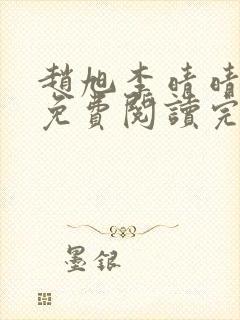 趙旭李晴晴
免費閱讀完
墨銀